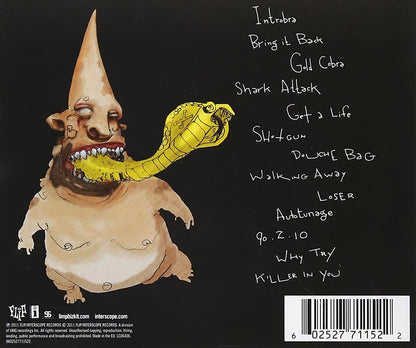 Introbra
Bring it Back
Gold Cobra
Shark Attack
Get a Life
Shotgun
Douche Bag
Walking Away
Loser
Autotunage
90.2.10
Why Try
Killer in You
FLIP i limpbizkit.com interscope.com
℗ 2011 FLIP/INTERSCOPE RECORDS © 2011 FLIP/INTERSCOPE RECORDS. A division
of UMG recordings Inc. All rights reserved. Unauthorised copying, reproduction, hiring,
lending, public performance and broadcasting prohibited. Made in the EU. LC06406.
0602527711522.
6 02527 71152 2